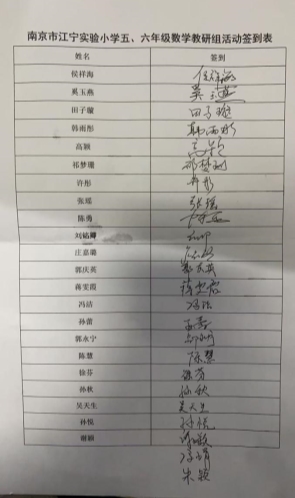 南京市江宁实验小学五、六年级数学教研组活动签到表
姓名 签到
侯祥海 侯祥海
奚玉燕 奚玉燕
田子璇 田子璇
韩雨彤 韩雨彤
高颖 高颖
祁梦珊 祁梦珊
许彤 许彤
张瑶 张瑶
陈勇
刘铭卿
庄嘉璐
郭庆英 郭庆英
蒋雯霞 蒋雯霞
冯洁 冯洁
孙蕾
郭永宁
陈慧 陈慧
徐芬 徐芬
孙秋 孙秋
吴天生 吴天生
孙悦 孙悦
谢颖
朱颖